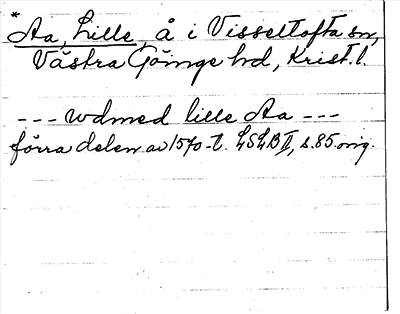 *
Aa, Lille å i Visseltofta sn,
Västra Göinge hd, Krist. l.
--- wdmed lille Aa ---
förra delen av 1570-t. LSLB II, s. 85. orig.